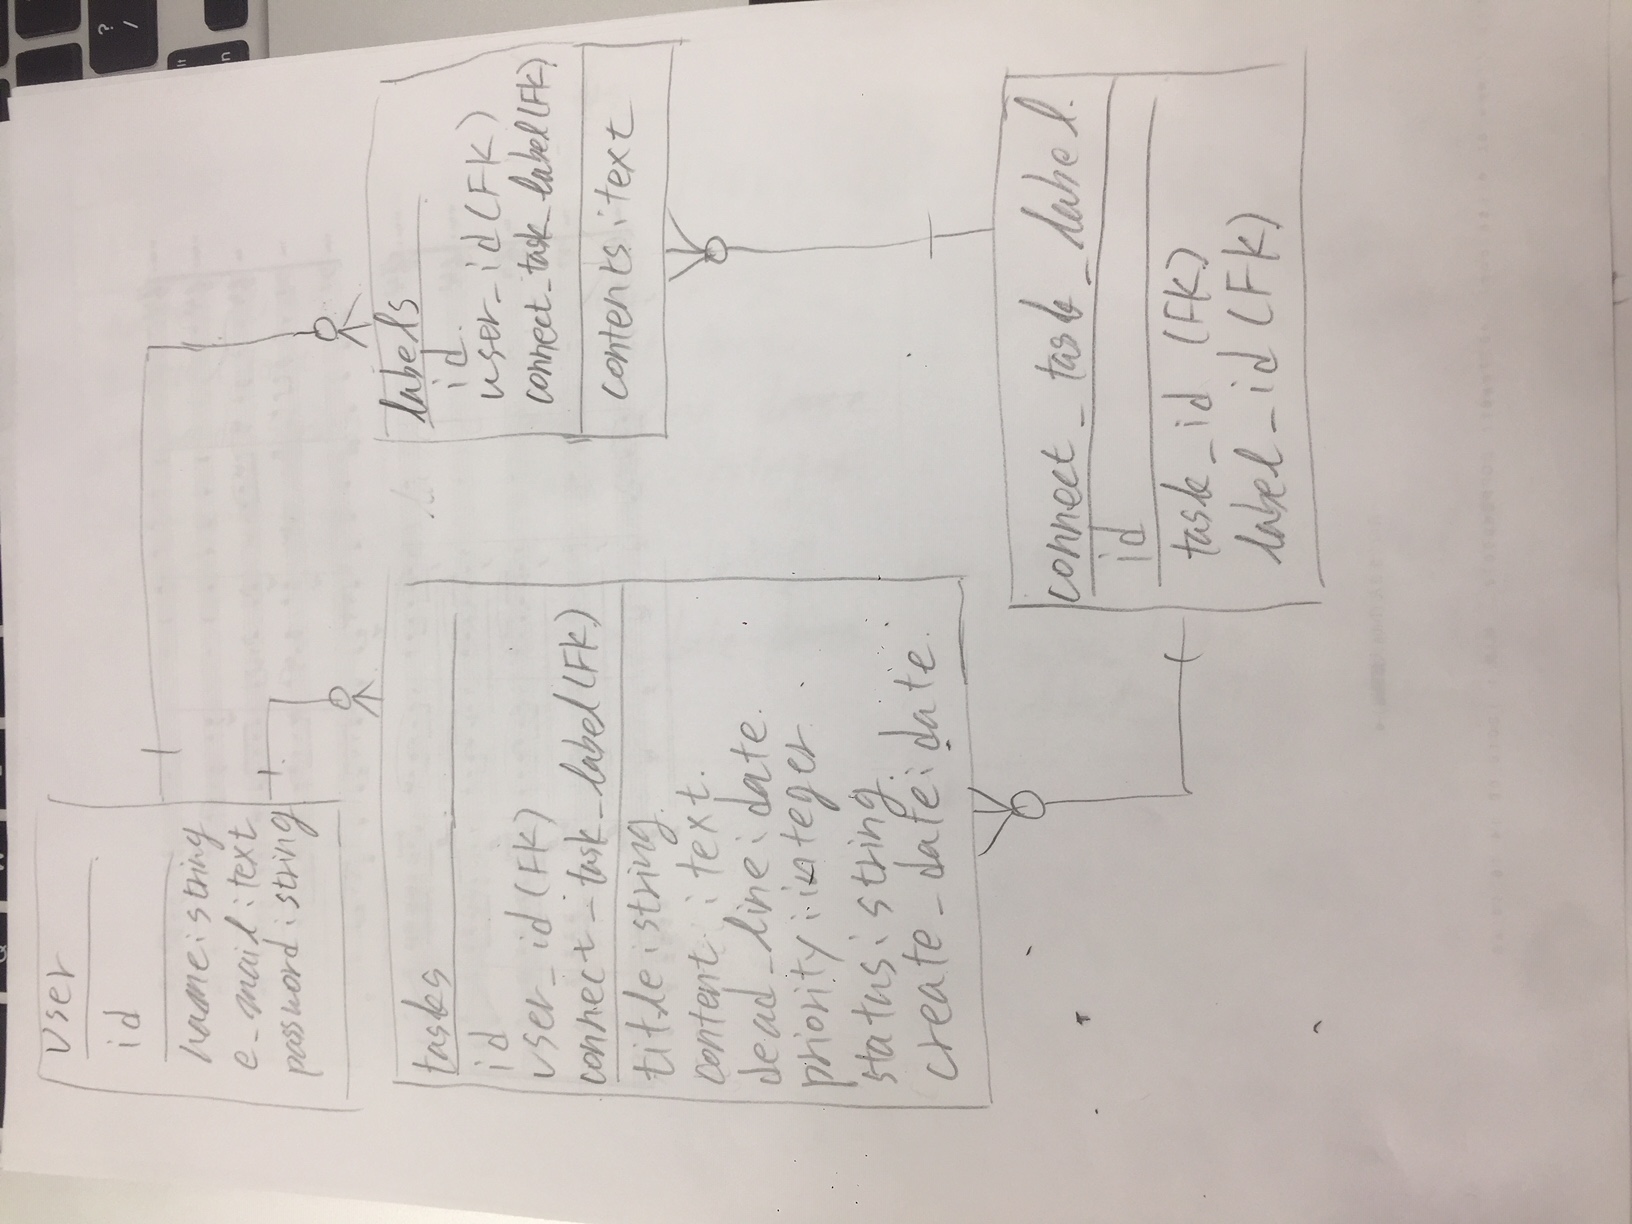 user
id
name : string
e_mail : text
password : string
tasks
id
user_id (FK)
connect_task_label (FK)
title : string
content : text.
dead_line : date.
priority : integer
status : string
create_date : date.
labels
id.
user_id (FK)
connect_task_label (FK)
contents : text
connect_task_label.
id
task_id (FK)
label_id (FK)
?
/